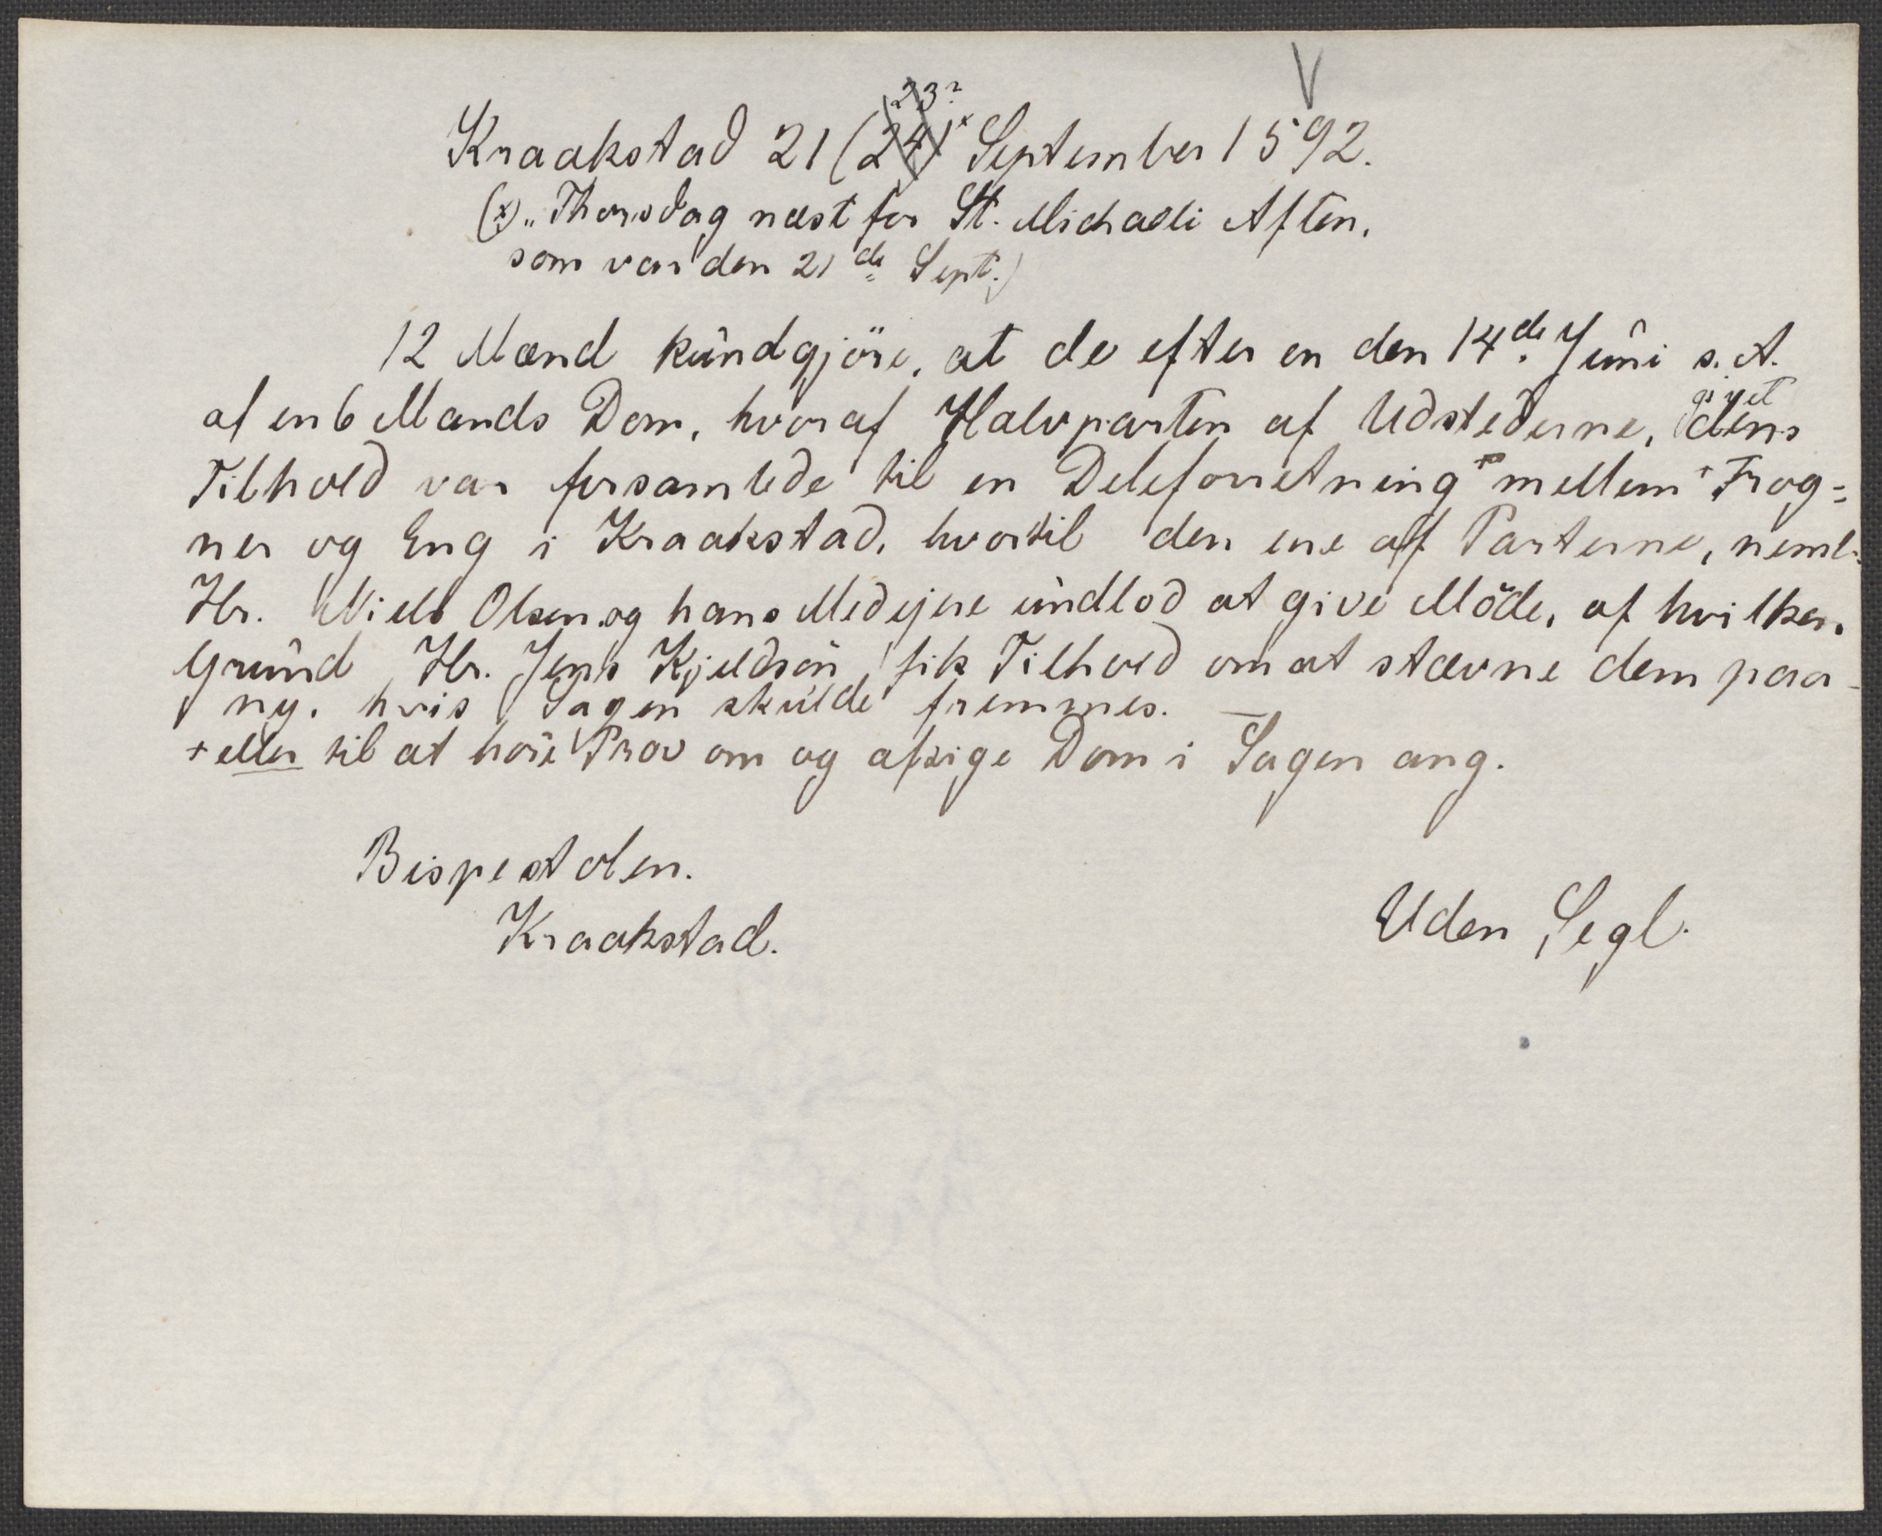 V
23?
Kraakstad 21 (24)x September 1592.
(x) „Thorsdag næst for St. Michaeli Aften,
som var den 21de Sept.)
12 Mænd kundgjöre, at de efter en den 14de Juni s. A.
givet
af en 6 Mands Dom, hvoraf Halvparten af Udstederne, dens
Tilhold var forsamlede til en Deleforretning + mellem + Frog=
ner og Eng i Kraakstad, hvortil den ene af Parterne, neml.
Hr. Niels Olsen og hans Medejere undlod at give Möde, af hvilken
Grund Hr. Jens Kjeldsön fik Tilhold om at stævne dem paa-
ny, hvis Sagen skulde fremmes. —
+ eller til at höre Prov om og afsige Dom i Sagen ang.
Bispestolen.
Kraakstad.
Uden Segl.